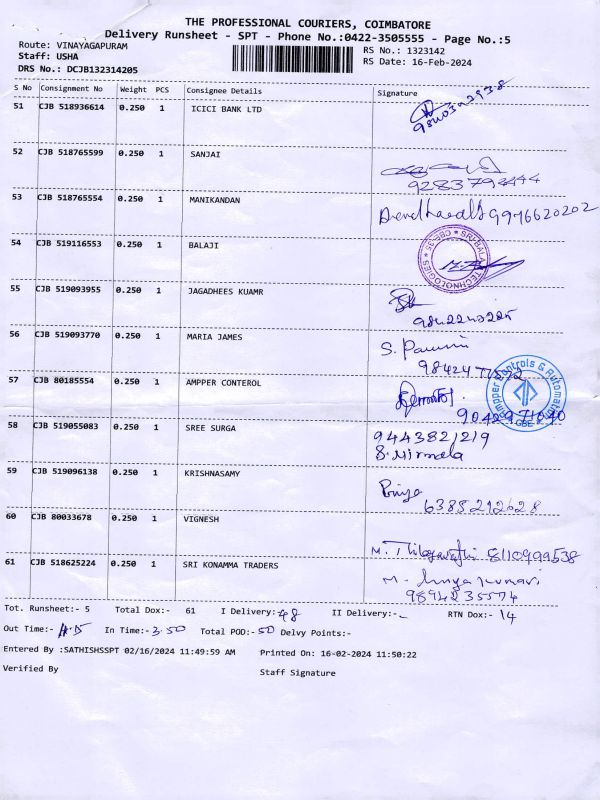 THE PROFESSIONAL COURIERS, COIMBATORE
Delivery Runsheet - SPT - Phone No.:0422-3505555 - Page No.:5
Route: VINAYAGAPURAM RS No.: 1323142
Staff: USHA RS Date: 16-Feb-2024
DRS No.: DCJB132314205
S No Consignment No Weight PCS Consignee Details Signature
51 CJB 518936614 0.250 1 ICICI BANK LTD
52 CJB 518765599 0.250 1 SANJAI
9283793444
53 CJB 518765554 0.250 1 MANIKANDAN 9976620202
54 CJB 519116553 0.250 1 BALAJI
SRI BALA TECHNOLOGIES ★ CBE-35 ★
55 CJB 519093955 0.250 1 JAGADHEES KUAMR
56 CJB 519093770 0.250 1 MARIA JAMES
57 CJB 80185554 0.250 1 AMPPER CONTEROL
Ampper Controls & Automation
CBE
58 CJB 519055083 0.250 1 SREE SURGA
9443821219
S. Nirmala
59 CJB 519096138 0.250 1 KRISHNASAMY Priya
6385212628
60 CJB 80033678 0.250 1 VIGNESH
8110999538
61 CJB 518625224 0.250 1 SRI KONAMMA TRADERS
9894235574
Tot. Runsheet:- 5 Total Dox:- 61 I Delivery:- 48 II Delivery:-- RTN Dox:- 14
Out Time:- In Time:- 3.50 Total POD:- 50 Delvy Points:-
Entered By :SATHISHSSPT 02/16/2024 11:49:59 AM Printed On: 16-02-2024 11:50:22
Verified By Staff Signature